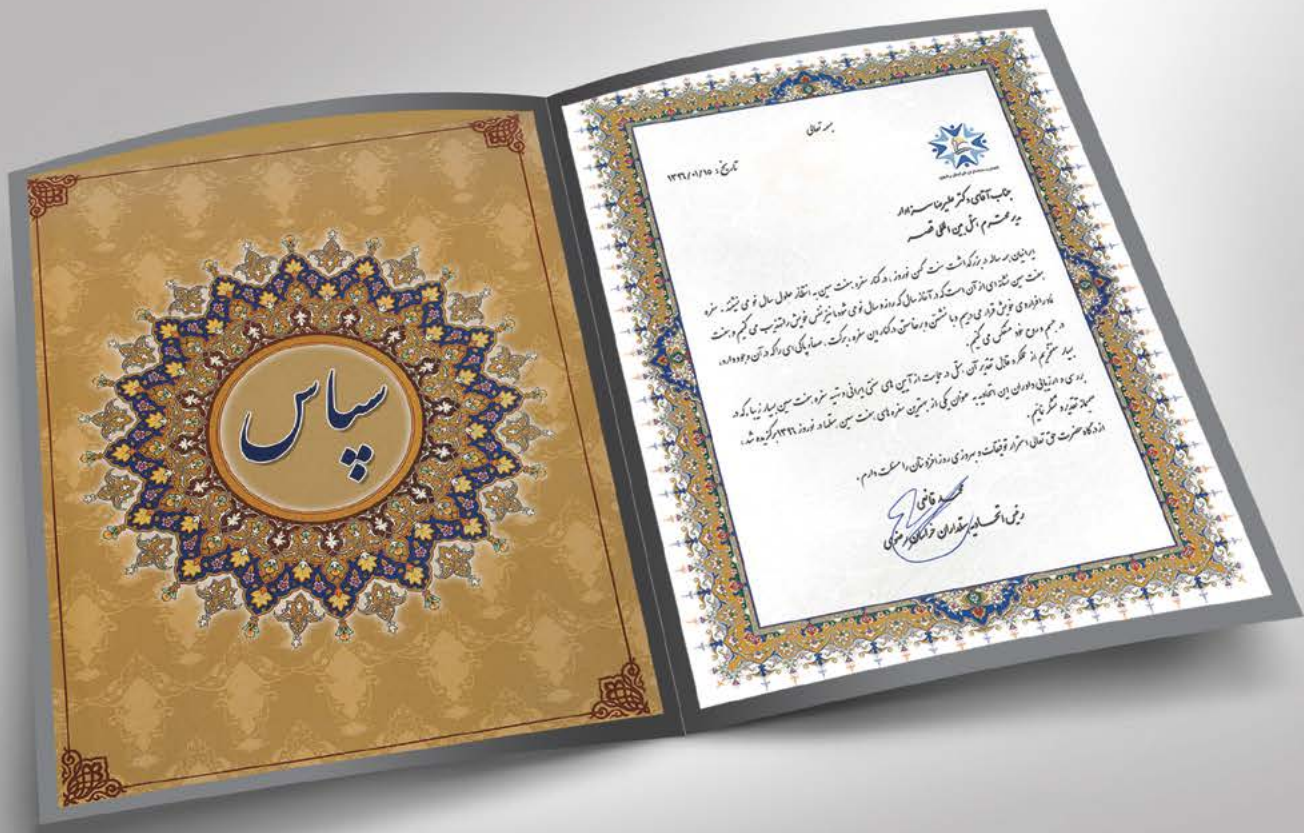 سپاس
بسمه تعالی
تاریخ: ۱۳۹۶/۰۱/۱۵
جناب آقای دکتر علیرضا سزاوار
مدیر محترم هتل بین المللی قصر
ایرانیان همه ساله در بزرگداشت سنت کهن نوروز، در کنار سفره هفت سین به انتظار حلول سال نو می نشینند. سفره
هفت سین نشانه ای از آن است که در آغاز سال که روزه سال نو می شود ما نیز نفس خویش را تهذیب می کنیم و هفت
نماد را فراروی خویش قرار می دهیم و با نشستن و برخاستن در کنار این سفره پر برکت، صفا و پاکی ای را که در آن وجود دارد،
در جسم و روح خود منعکس می کنیم.
بسیار مفتخریم از عملکرد قابل تقدیر آن هتل در حمایت از آیین های سنتی ایرانی و تهیه سفره هفت سین بسیار زیبا، که در
بررسی و ارزیابی داوران این اتحادیه به عنوان یکی از بهترین سفره های هفت سین هتلها در نوروز ۱۳۹۶ برگزیده شد،
صمیمانه تقدیر و تشکر نمائیم.
از درگاه حضرت حق تعالی استمرار توفیقات و بهروزی روز افزونتان را مسئلت دارم.
محمد قانعی
رئیس اتحادیه هتلداران خراسان رضوی